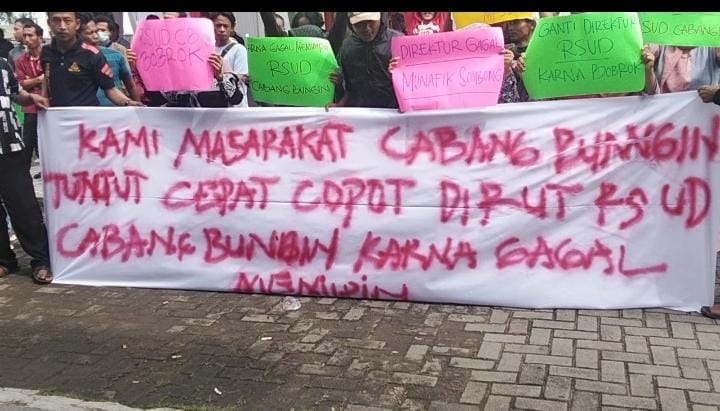 RSUD CB
BOBROK
KARNA GAGAL MEMIMPIN
RSUD
CABANG BUNGIN
DIREKTUR GAGAL
MUNAFIK SOMBONG
GANTI DIREKTUR
RSUD
KARNA BOBROK
RSUD CABANG
KAMI MASARAKAT CABANG BUANGIN
TUNTUT CEPAT COPOT DIRUT RSUD
CABANG BUNGIN KARNA GAGAL
MEMIMPIN